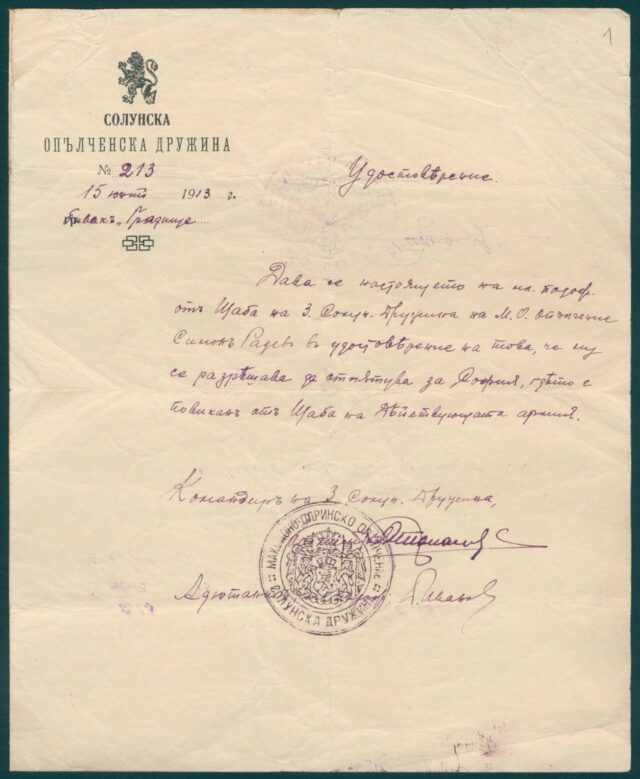 1
СОЛУНСКА
ОПЪЛЧЕНСКА ДРУЖИНА
№ 213
15 юний 1913 г.
Бивакъ „Градище
Удостовѣрение.
Дава се настоящето на мл. подоф.
отъ Щаба на 3. Солун. Дружина на М. О. опълчение
Симонъ Радевъ въ удостовѣрение на това, че му
се разрѣшава да отпѫтува за София, гдѣто е
повиканъ отъ Щаба на Дѣйствующата армия.
Командиръ на 3 Солун. Дружина,
Адютантъ Иванов
МАКЕДОНО-ОДРИНСКО ОПЪЛЧЕНИЕ
СОЛУНСКА ДРУЖИНА